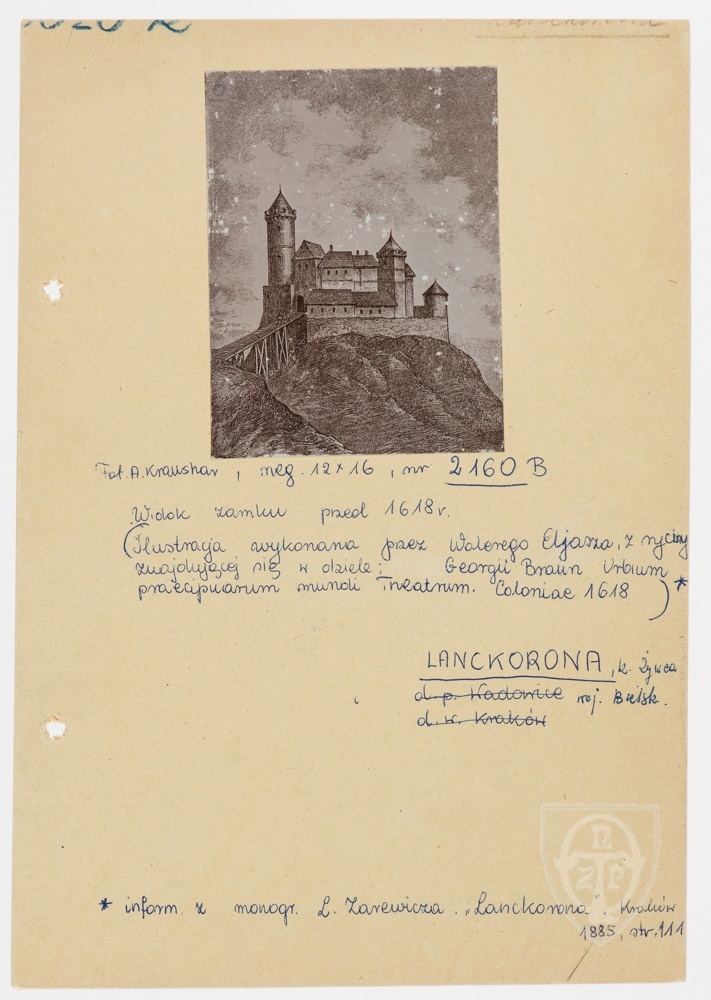 Lanckorona
6
Fot. A. Kraushar, neg. 12x16, nr 2160 B
Widok zamku przed 1618 r.
(Ilustracja wykonana przez Walerego Eljasza, z ryciny
znajdującej się w dziele: Georgii Braun Urbium
praecipuarum mundi Theatrum. Coloniae 1618)*
LANCKORONA, k. Żywca
d. p. Wadowice woj. Bielsk.
d. w. Kraków
* inform. z monogr. L. Zarewicza. „Lanckorona". Kraków
1885, str. 111